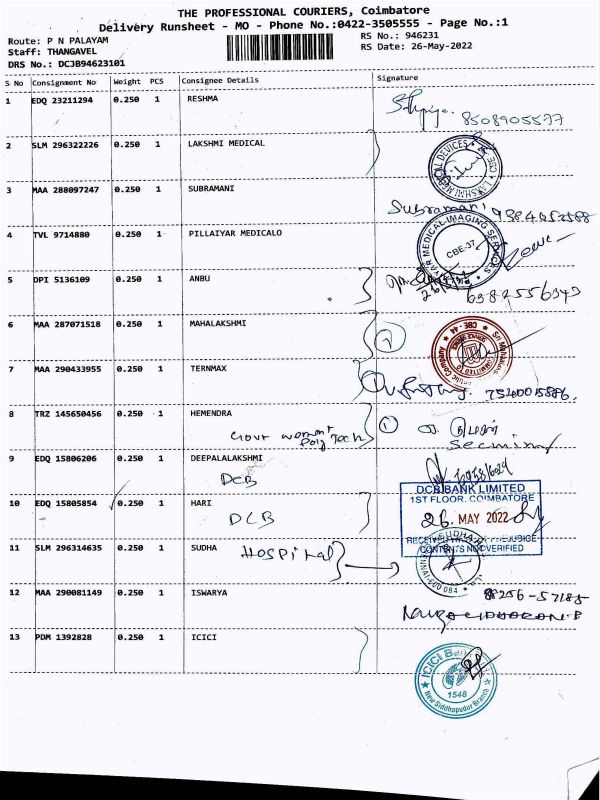 THE PROFESSIONAL COURIERS, Coimbatore
Delivery Runsheet - MO - Phone No.:0422-3505555 - Page No.:1
Route: P N PALAYAM RS No.: 946231
Staff: THANGAVEL RS Date: 26-May-2022
DRS No.: DCJB94623101
S No Consignment No Weight PCS Consignee Details Signature
1 EDQ 23211294 0.250 1 RESHMA
8508905577
2 SLM 296322226 0.250 1 LAKSHMI MEDICAL
LAKSHMI MEDICAL DEVICES CBE
3 MAA 288097247 0.250 1 SUBRAMANI
Subramani 9384652588
4 TVL 9714880 0.250 1 PILLAIYAR MEDICALO
MEDICAL IMAGING SERVICES CBE-37
5 DPI 5136109 0.250 1 ANBU
6382556343
6 MAA 287071518 0.250 1 MAHALAKSHMI
Sri Mahalakshmi CBE-44
7 MAA 290433955 0.250 1 TERNMAX
7540015886.
8 TRZ 145650456 0.250 1 HEMENDRA
Govt women's
Poly Tech
1
9 EDQ 15806206 0.250 1 DEEPALALAKSHMI
DCB
10 EDQ 15805854 0.250 1 HARI
DCB
DCB BANK LIMITED
1ST FLOOR, COIMBATORE
26. MAY 2022
RECEIVED PREJUDICE
CONTENTS NOT VERIFIED
11 SLM 296314635 0.250 1 SUDHA HOSPITAL
SUDHA
12 MAA 290081149 0.250 1 ISWARYA
88256-57185
13 PDM 1392828 0.250 1 ICICI
ICICI Bank
1548
New Siddhapudur Branch